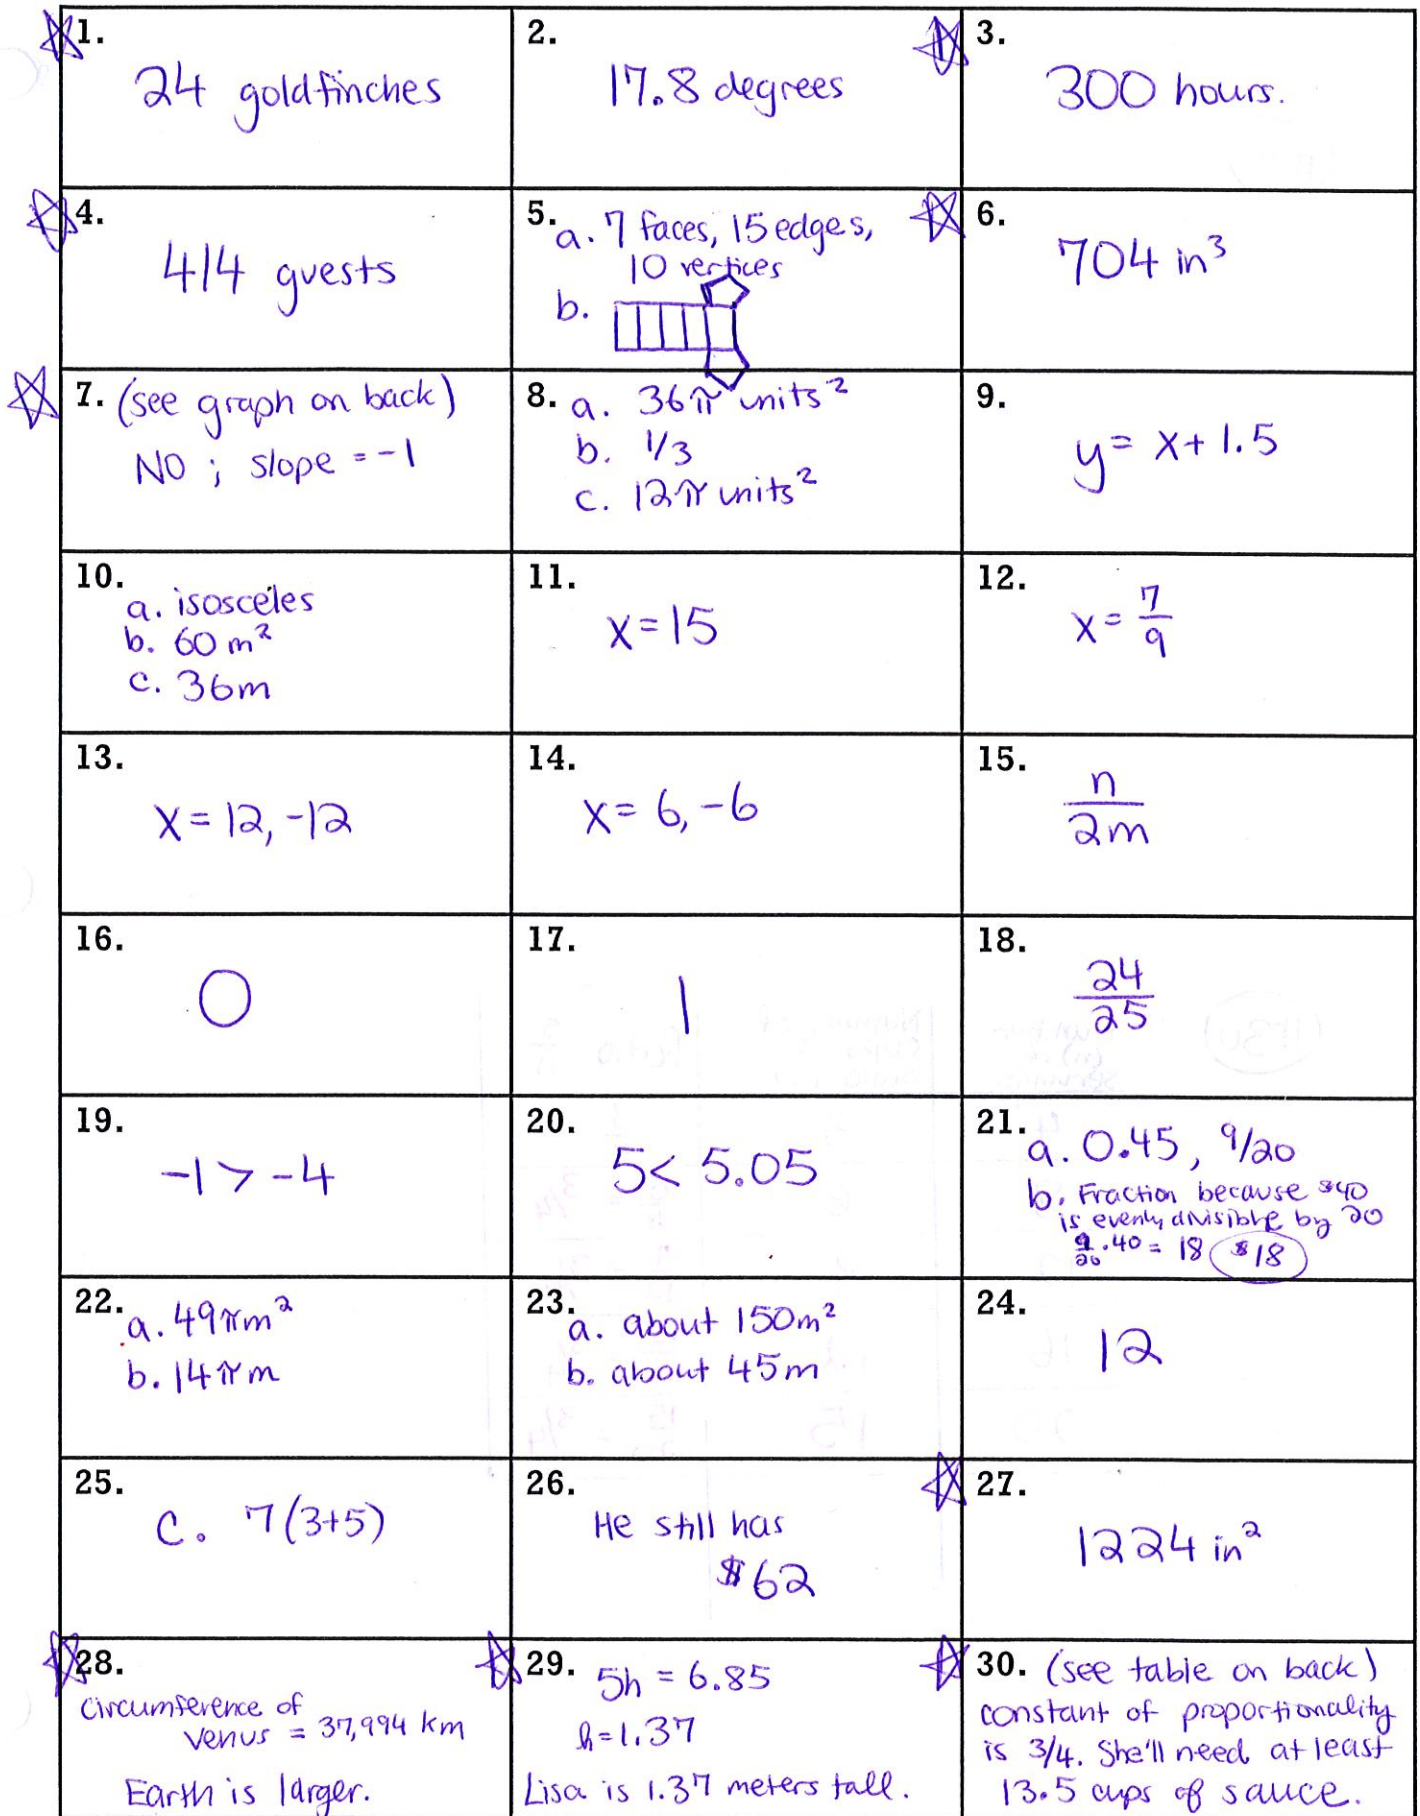 1.
24 goldfinches
2.
17.8 degrees
3.
300 hours.
4.
414 guests
5.
a. 7 faces, 15 edges,
10 vertices
b.
6.
704 in³
7. (see graph on back)
NO ; slope = -1
8. a. 36π units²
b. 1/3
c. 12π units²
9.
y = x + 1.5
10.
a. isosceles
b. 60 m²
c. 36m
11.
x = 15
12.
x = 7/9
13.
x = 12, -12
14.
x = 6, -6
15.
n/2m
16.
0
17.
1
18.
24/25
19.
-1 > -4
20.
5 < 5.05
21.
a. 0.45, 9/20
b. Fraction because $40
is evenly divisible by 20
9/20 · 40 = 18 $18
22.
a. 49πm²
b. 14πm
23.
a. about 150m²
b. about 45m
24.
12
25.
C. 7(3+5)
26.
He still has
$62
27.
1224 in²
28.
Circumference of
Venus = 37,994 km
Earth is larger.
29. 5h = 6.85
h = 1.37
Lisa is 1.37 meters tall.
30. (see table on back)
constant of proportionality
is 3/4. She'll need at least
13.5 cups of sauce.